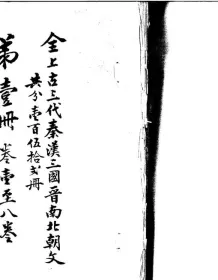 全上古三代秦漢三國晉南北朝文
共分壹百伍拾弍冊
第壹冊 卷壹至八卷